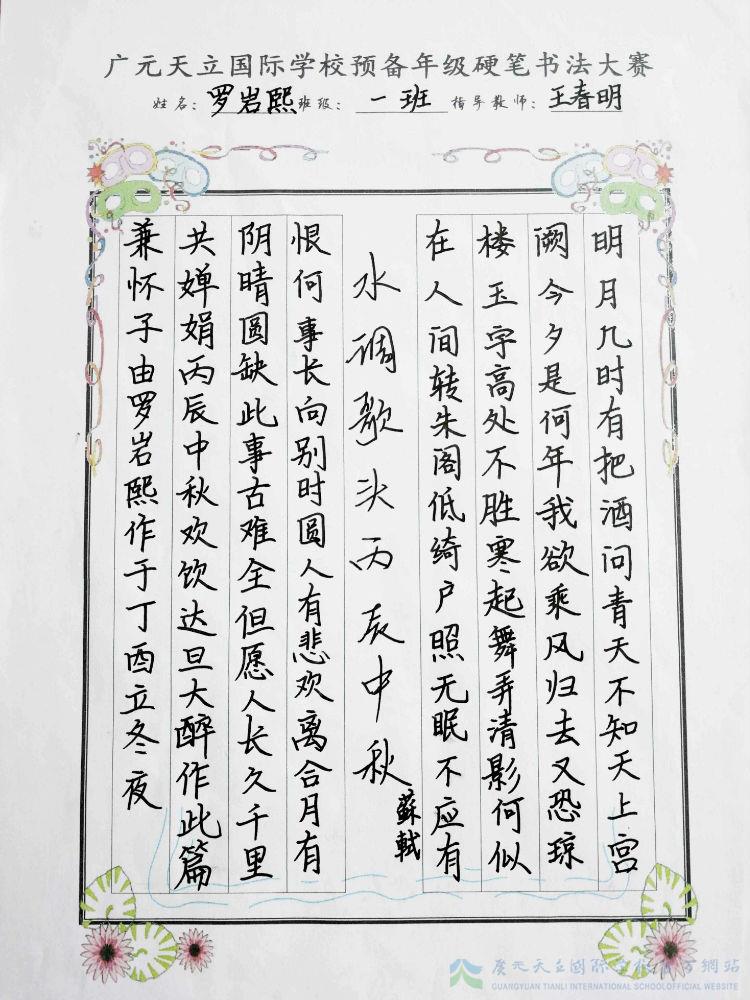 广元天立国际学校预备年级硬笔书法大赛
姓名：罗岩熙班级：一班 指导教师：王春明
明月几时有把酒问青天不知天上宫
阙今夕是何年我欲乘风归去又恐琼
楼玉宇高处不胜寒起舞弄清影何似
在人间转朱阁低绮户照无眠不应有
水调歌头丙辰中秋
蘇軾
恨何事长向别时圆人有悲欢离合月有
阴晴圆缺此事古难全但愿人长久千里
共婵娟丙辰中秋欢饮达旦大醉作此篇
兼怀子由罗岩熙作于丁酉立冬夜
广元天立國际学校官方網站
GUANGYUAN TIANLI INTERNATIONAL SCHOOLOFFICIAL WEBSITE